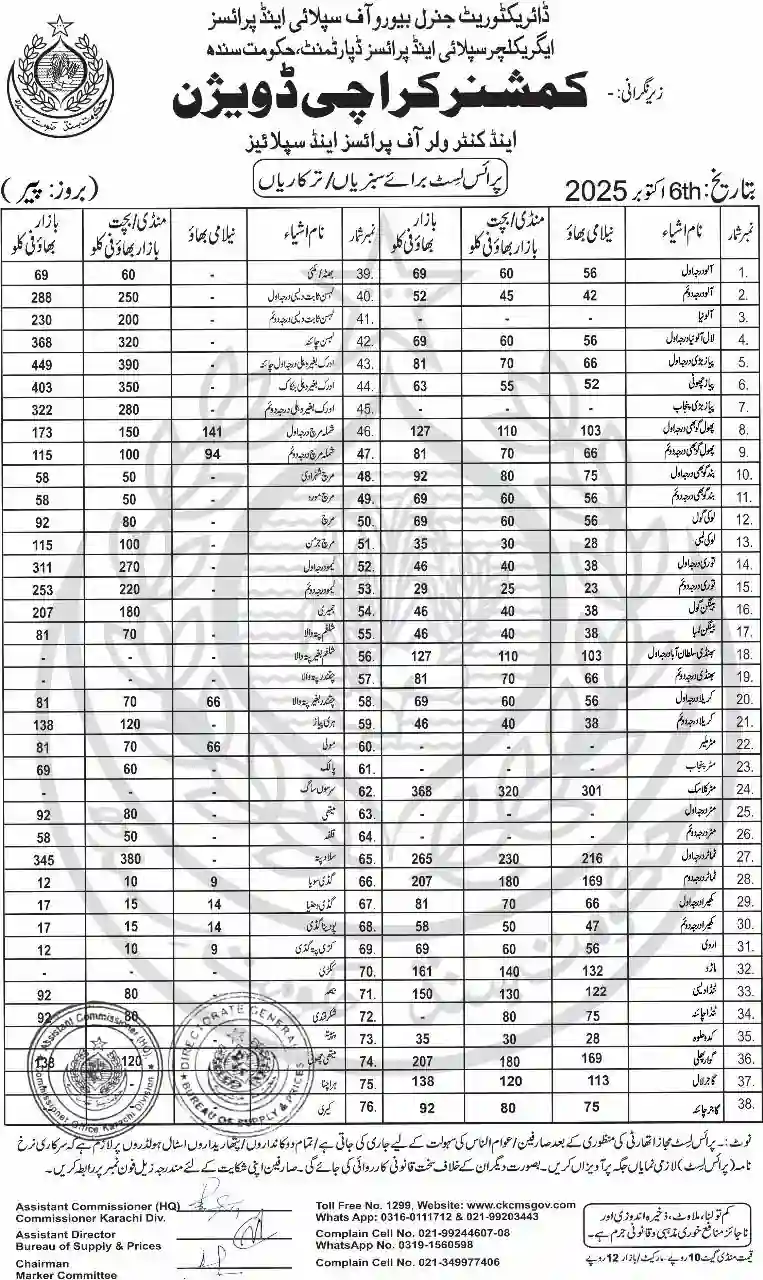 ڈائریکٹوریٹ جنرل بیورو آف سپلائی اینڈ پرائسز
ایگریکلچر سپلائی اینڈ پرائسز ڈپارٹمنٹ، حکومت سندھ
زیر نگرانی: -
کمشنر کراچی ڈویژن
اینڈ کنٹرولر آف پرائسز اینڈ سپلائیز
پرائس لسٹ برائے سبزیاں/ترکاریاں
بتاریخ: 6th اکتوبر 2025
(بروز: پیر)
نمبر شمار نام اشیاء نیلامی بھاؤ منڈی/بچت بازار بھاؤ فی کلو بازار بھاؤ فی کلو نمبر شمار نام اشیاء نیلامی بھاؤ منڈی/بچت بازار بھاؤ فی کلو بازار بھاؤ فی کلو
1. آلو درجہ اول 56 60 69 39. 60 69
2. آلو درجہ دوئم 42 45 52 40. لہسن ثابت دیسی درجہ اول - 250 288
3. آلو نیا - - - 41. لہسن ثابت دیسی درجہ دوئم - 200 230
4. لال آلو نیا درجہ اول 56 60 69 42. لہسن چائنہ - 320 368
5. پیاز بڑی درجہ اول 66 70 81 43. ادرک بغیر دھلی درجہ اول چائنہ - 390 449
6. پیاز چھوٹی 52 55 63 44. ادرک بغیر دھلی بنکاک - 350 403
7. پیاز بڑی پنجاب - - - 45. ادرک بغیر دھلی درجہ دوئم - 280 322
8. پھول گوبھی درجہ اول 103 110 127 46. شملہ مرچ درجہ اول 141 150 173
9. پھول گوبھی درجہ دوئم 66 70 81 47. شملہ مرچ درجہ دوئم 94 100 115
10. بند گوبھی درجہ اول 75 80 92 48. مرچ شہزادی - 50 58
11. بند گوبھی درجہ دوئم 56 60 69 49. مرچ موٹا - 50 58
12. لوکی گول 56 60 69 50. مرچ - 80 92
13. لوکی لمبی 28 30 35 51. مرچ جرمن - 100 115
14. توری درجہ اول 38 40 46 52. لیمو درجہ اول - 270 311
15. توری درجہ دوئم 23 25 29 53. لیمو درجہ دوئم - 220 253
16. بینگن گول 38 40 46 54. - 180 207
17. بینگن لمبا 38 40 46 55. شلغم پتہ والا - 70 81
18. بھنڈی سلطان آباد درجہ اول 103 110 127 56. شلغم بغیر پتہ والا - - -
19. بھنڈی درجہ دوئم 66 70 81 57. چقندر پتہ والا - - -
20. کریلا درجہ اول 56 60 69 58. چقندر بغیر پتہ والا 66 70 81
21. کریلا درجہ دوئم 38 40 46 59. ہری پیاز - 120 138
22. مٹر ملیر - - - 60. مولی 66 70 81
23. مٹر پنجاب - - - 61. پالک - 60 69
24. مٹر کلاسک 301 320 368 62. سرسوں ساگ - - -
25. مٹر درجہ اول - - - 63. میتھی - 80 92
26. مٹر درجہ دوئم - - - 64. قلفہ - 50 58
27. ٹماٹر درجہ اول 216 230 265 65. سلاد پتہ - 380 345
28. ٹماٹر درجہ دوم 169 180 207 66. گڈی سویا 9 10 12
29. کھیرا درجہ اول 66 70 81 67. گڈی دھنیا 14 15 17
30. کھیرا درجہ دوئم 47 50 58 68. پودینا گڈی 14 15 17
31. اروی 56 60 69 69. کڑی پتہ گڈی 9 10 12
32. 132 140 161 70. ککڑی - - -
33. ٹنڈا دیسی 122 130 150 71. - 80 92
34. ٹنڈا چائنہ 75 80 - 72. شکر قندی 80 92
35. کدو حلوہ 28 30 35 73.
36. گوار پھلی 169 180 207 74. میتھی چھوٹی 120 138
37. گاجر لال 113 120 138 75. ہرا چنا
38. گاجر چائنہ 75 80 92 76. کیری
نوٹ: ۔ پرائس لسٹ مجاز اتھارٹی کی منظوری کے بعد صارفین/عوام الناس کی سہولت کے لیے جاری کی جاتی ہے/تمام دوکانداروں/پتھاریداروں اسٹال ہولڈروں پر لازم ہے کہ سرکاری نرخ
نامہ (پرائس لسٹ) لازمی نمایاں جگہ پر آویزاں کریں۔ بصورت دیگر ان کے خلاف سخت قانونی کارروائی کی جائے گی۔ صارفین اپنی شکایت کے لئے مندرجہ زیل فون نمبر پر رابطہ کریں۔
Assistant Commissioner (HQ)
Commissioner Karachi Div.
Assistant Director
Bureau of Supply & Prices
Chairman
Marker Committee
Toll Free No. 1299, Website: www.ckcmsgov.com
Whats App: 0316-0111712 & 021-99203443
Complain Cell No. 021-99244607-08
WhatsApp No. 0319-1560598
Complain Cell No. 021-349977406
کم تولنا، ملاوٹ، ذخیرہ اندوزی اور
ناجائز منافع خوری مذہبی و قانونی جرم ہے۔
قیمت منڈی گیٹ 10 روپے ۔ مارکیٹ/بازار 12 روپے
Assistant Commissioner (HQ)
Commissioner Office Karachi Division
DIRECTORATE GENERAL
BUREAU OF SUPPLY & PRICES